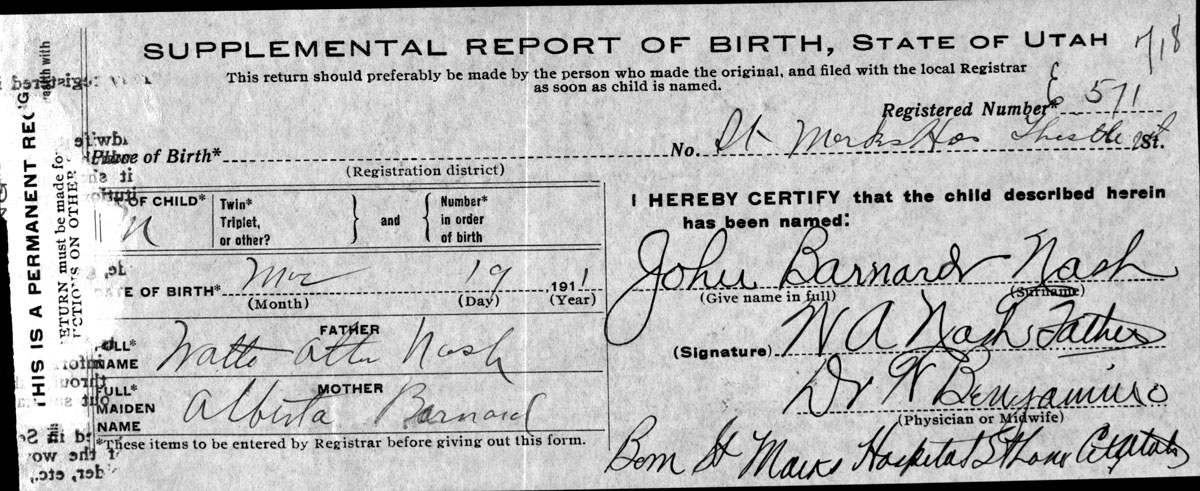 SUPPLEMENTAL REPORT OF BIRTH, STATE OF UTAH
718
This return should preferably be made by the person who made the original, and filed with the local Registrar
as soon as child is named.
Registered Number* 571
Place of Birth* No. St Marks Hos St.
(Registration district)
OF CHILD*
Twin*
Triplet,
or other?
and
Number*
in order
of birth
DATE OF BIRTH* 19 1911
(Month) (Day) (Year)
FATHER
FULL*
NAME Nash
MOTHER
FULL*
MAIDEN
NAME Alberta Barnard
*These items to be entered by Registrar before giving out this form.
I HEREBY CERTIFY that the child described herein
has been named:
John Barnard Nash
(Give name in full) (Surname)
(Signature) W A Nash Father
Dr
(Physician or Midwife)
Born St Marks Hospital
THIS IS A PERMANENT REC
ETURN must be made fo
CTIONS ON OTHER